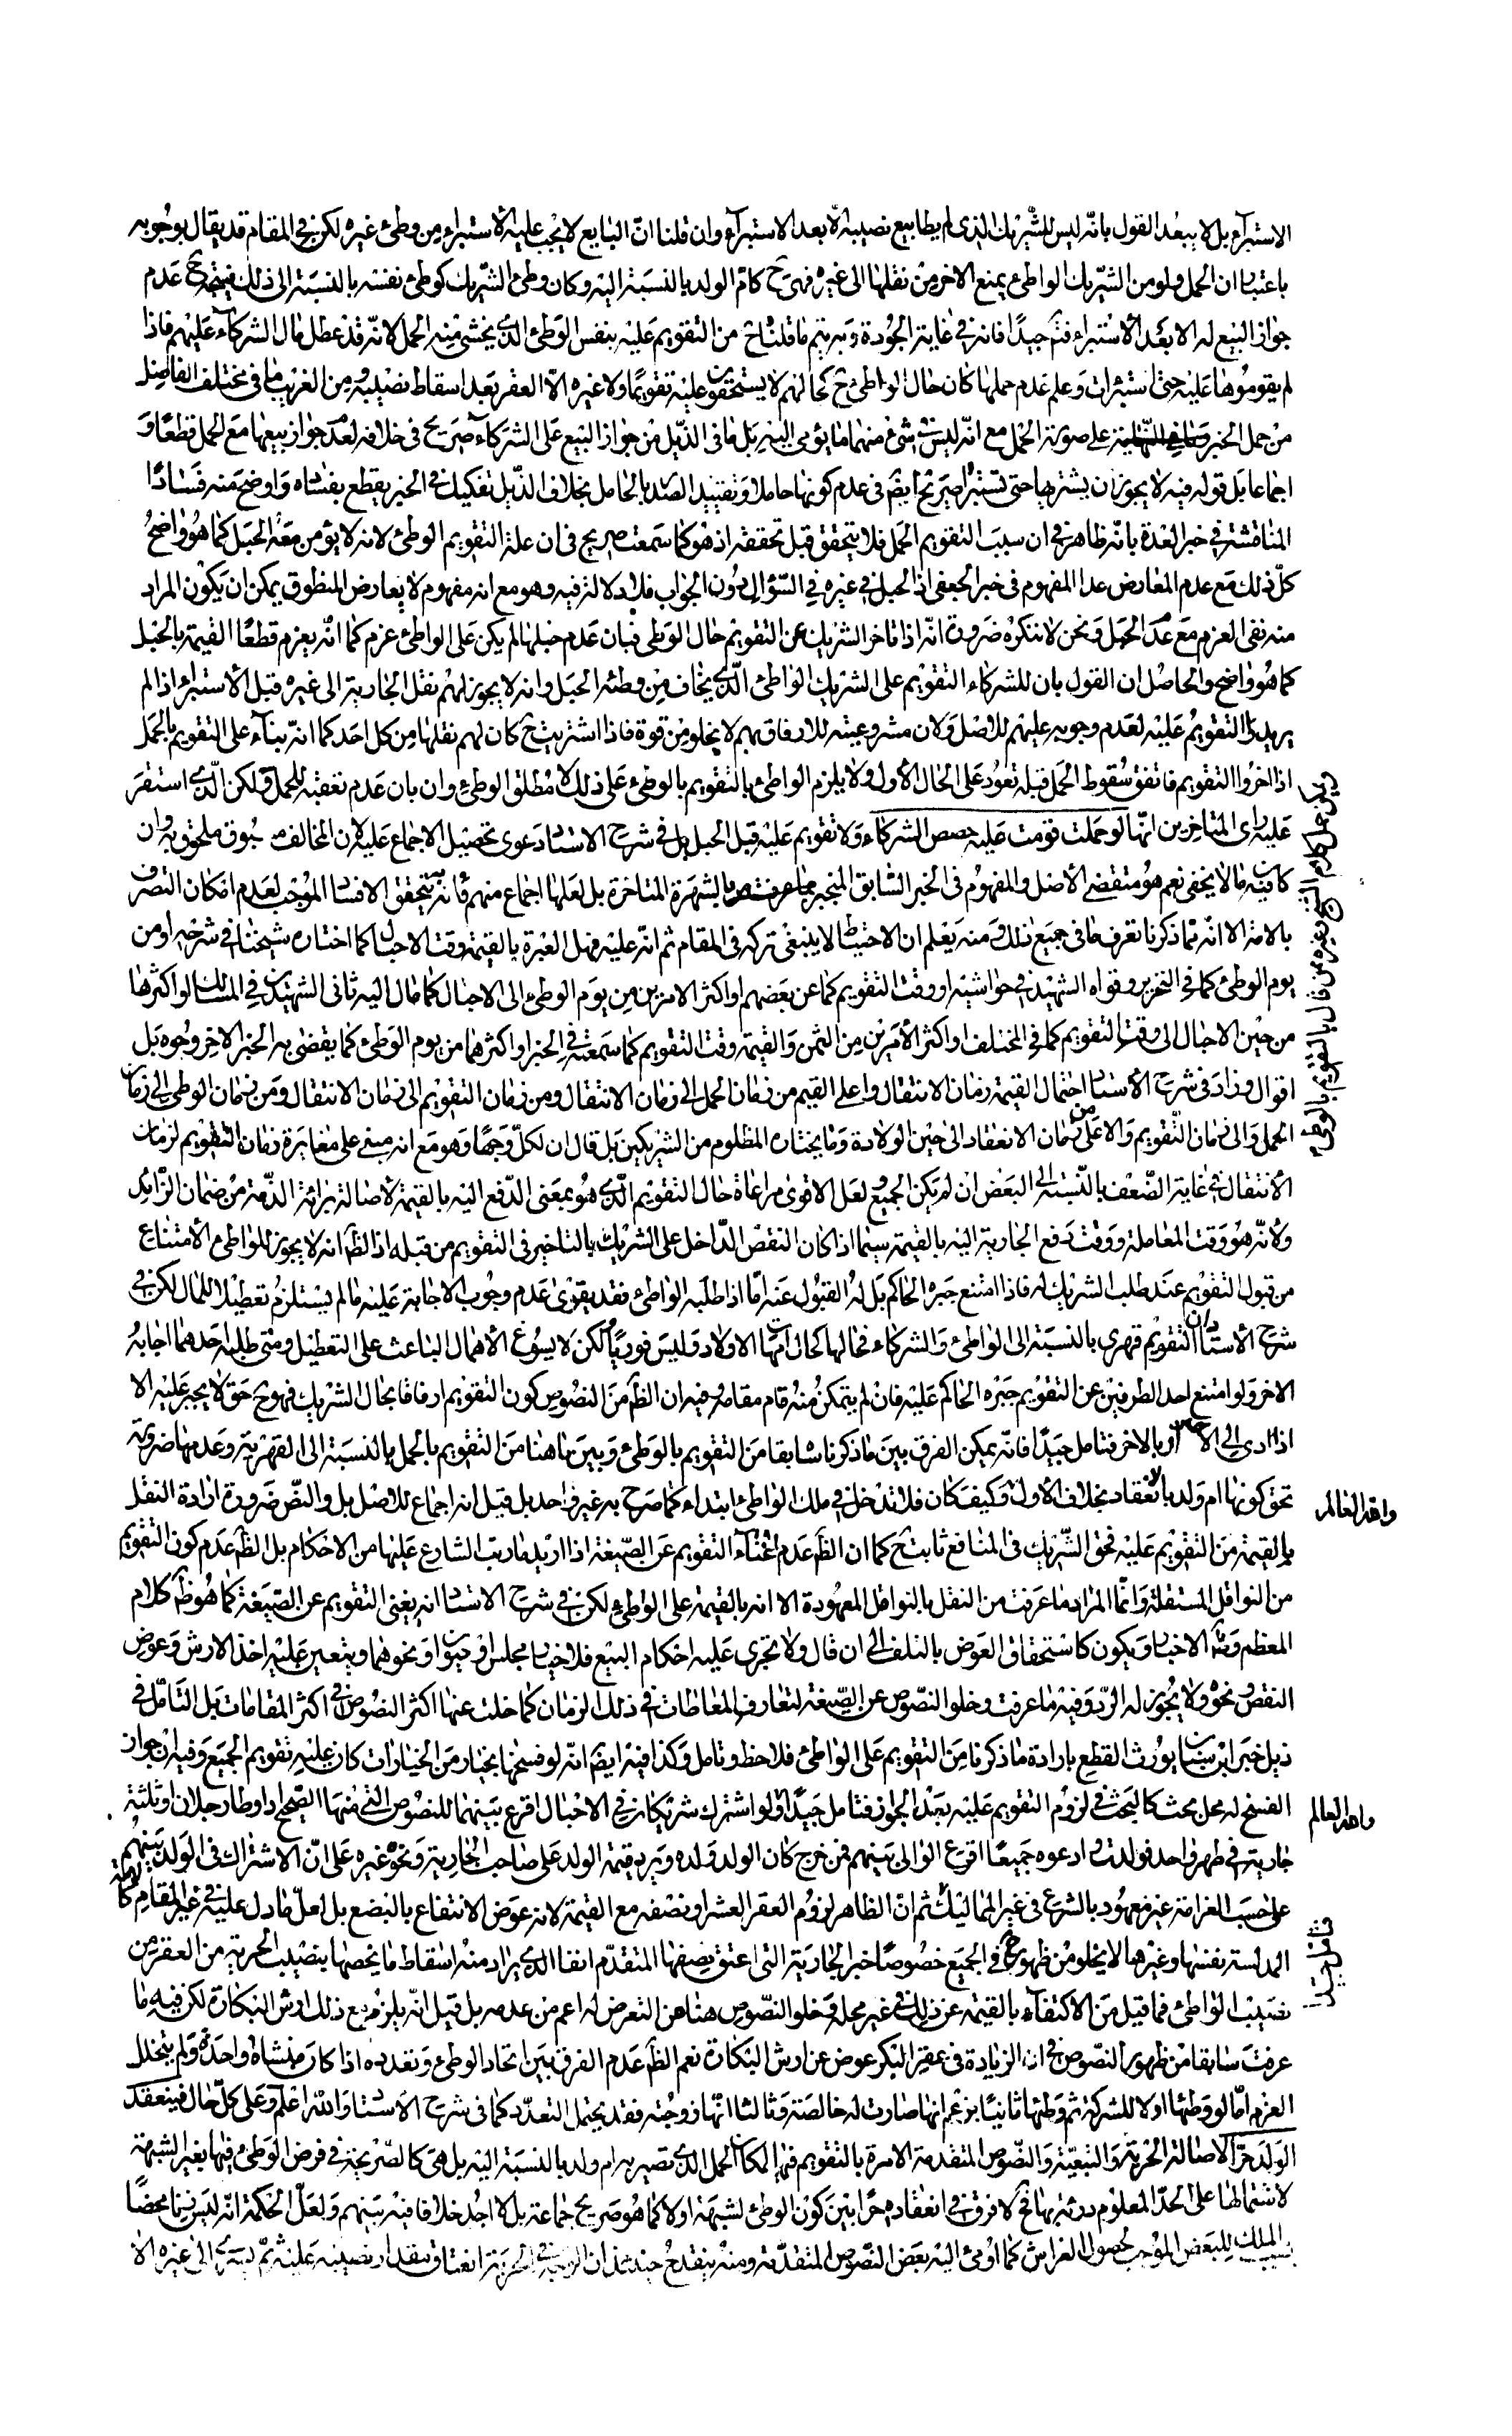 الاستبراء بل لا يبعد القول بانه ليس للشريك الذى لم يطا بيع نصيبه الا بعد الاستبراء وان قلنا ان البايع لا يجب عليه الاستبراء من وطئ غيره لكن في المقام قد يقال بوجوبه
باعتبار ان الحمل ولو من الشريك الواطئ يمنع الاخر من نقلها الى غيره فهى ح كام الولد بالنسبة اليه وكان وطئ الشريك كوطئ نفسه بالنسبة الى ذلك فيتجه ح عدم
جواز البيع له الا بعد الاستبراء فتم جيدا فانه في غاية الجودة وبه يتم ما قلناه من التقويم عليه بنفس الوطئ الذى يخشى منه الحمل لانه قد عطل مال الشركاء عليهم فاذا
لم يقوموها عليه حتى استبرات وعلم عدم حملها كان حال الواطئ ح كحالهم لا يستحقون عليه تقويما ولا غيره الا العقر بعد اسقاط نصيبه ومن الغريب ما في مختلف الفاضل
من حمل الخبر على صورة الحمل مع انه ليس شئ منهما ما يؤمى اليه بل ما في الذيل من جواز البيع على الشركاء صريح في خلافه لعدم جواز بيعها مع الحمل قطعا و
اجماعا بل قوله فيه لا يجوز ان يشتريها حتى تستبرا صريح ايضا في عدم كونها حاملا وتقييد الصدر بالحامل بخلاف الذيل تفكيك في الخبر يقطع بفساده واوضح منه فسادا
المناقشة في خبر العدة بانه ظاهر في ان سبب التقويم الحمل فلا يتحقق قبل تحققه اذ هو كما سمعت صريح في ان علة التقويم الوطئ لانه لا يؤمن معه الحبل كما هو واضح
كل ذلك مع عدم المعارض عدا المفهوم في خبر الجعفى اذ الحبل في غيره في السؤال دون الجواب فلا دلالة فيه وهو مع انه مفهوم لا يعارض المنطوق يمكن ان يكون المراد
منه نفى الغرم مع عدم الحبل ونحن لا ننكره ضرورة انه اذا تاخر الشريك عن التقويم حال الوطى فبان عدم حبلها لم يكن على الواطئ غرم كما انه يغرم قطعا القيمة بالحبل
كما هو واضح والحاصل ان القول بان للشركاء التقويم على الشريك الواطئ الذى يخاف من وطئه الحبل وانه لا يجوز لهم نقل الجارية الى غيره قبل الاستبراء اذا لم
يريدوا التقويم عليه لعدم وجوبه عليهم للاصل ولان مشروعيته للارفاق بهم لا يخلو من قوة فاذا استبرئت ح كان لهم نقلها من كل احد كما انه بناء على التقويم بالحمل
اذا اخروا التقويم فاتفق سقوط الحمل قبله تعود على الحال الاول ولا يلزم الواطئ بالتقويم بالوطئ على ذلك لا مطلق الوطئ وان بان عدم تعقبه للحمل ولكن الذى استقر
عليه راى المتاخرين انها لو حملت قومت عليه حصص الشركاء ولا تقويم عليه قبل الحبل بل في شرح الاستاد دعوى تحصيل الاجماع عليه لان المخالف مسبوق ملحوق به وان
كان فيه ما لا يخفى نعم هو مقتضى الاصل والمفهوم في الخبر السابق المنجبر بالشهرة المتاخرة بل لعلها اجماع منهم فانه به يتحقق الافساد الموجب لعدم امكان التصرف
بالامة الا انه مما ذكرنا تعرف ما في جميع ذلك ومنه يعلم ان الاحتياط لا ينبغى تركه في المقام ثم انه عليه فهل العبرة بالقيمة وقت الاحبال كما اختاره شيخنا في شرحه او من
يوم الوطئ كما في التحرير وقواه الشهيد في حواشيه او وقت التقويم كما عن بعضهم او اكثر الامرين من يوم الوطئ الى الاحبال كما مال اليه ثاني الشهيدين في المسالك او اكثرها
من حين الاحبال الى وقت التقويم كما في المختلف او اكثر الامرين من الثمن والقيمة وقت التقويم كما سمعته في الخبر او اكثرهما من يوم الوطئ كما يقضى به الخبر الاخر وجوه بل
اقوال وزاد في شرح الاستاد احتمال القيمة زمان الانتقال واعلى القيم من زمان الحمل الى زمان الانتقال ومن زمان التقويم الى زمان الانتقال ومن زمان الوطى الى زمان
الحمل والى زمان التقويم والاعلى من زمان الانعقاد الى حين الولادة وما يختاره المظلوم من الشريكين بل قال ان لكل وجها وهو مع انه مبنى على مغايرة زمان التقويم لزمان
الانتقال في غاية الضعف بالنسبة الى البعض ان لم يكن الجميع ولعل الاقوى مراعاة حال التقويم الذى هو بمعنى الدفع اليه بالقيمة لاصالة برائة الذمة من ضمان الزايد
ولانه هو وقت المعاملة ووقت دفع الجارية اليه بالقيمة سيما اذا كان النقص الداخل على الشريك بالتاخير في التقويم من قبله اذ الظ انه لا يجوز للواطئ الامتناع
من قبول التقويم عند طلب الشريك له فاذا امتنع جبره الحاكم بل له القبول عنه اما اذا طلبه الواطئ فقد يقوى عدم وجوب الاجابة عليه ما لم يستلزم تعطيلا للمال لكن في
شرح الاستاد ان التقويم قهرى بالنسبة الى الواطئ والشركاء فحالها كحال امهات الاولاد وليس فوريا لكن لا يسوغ الاهمال الباعث على التعطيل ومتى طلب احدهما اجابه
الاخر ولو امتنع احد الطرفين عن التقويم جبره الحاكم عليه فان لم يتمكن منه قام مقامه وفيه ان الظ من النصوص كون التقويم ارفاقا بحال الشريك فهو ح حق لا يجبر عليه الا
اذا ادى الى الاضرار بالاخر فتامل جيدا فانه يمكن الفرق بين ما ذكرنا سابقا من التقويم بالوطئ وبين ما هنا من التقويم بالحمل بالنسبة الى القهرية وعدمها ضرورة
تحقق كونها ام ولد بالانعقاد بخلاف الاول وكيف كان فلا تدخل في ملك الواطئ ابتداء كما صرح به غير واحد بل قيل انه اجماع للاصل بل والنص ضرورة ارادة النقل
بالقيمة من التقويم عليه فحق الشريك في المنافع ثابت ح كما ان الظ عدم اغناء التقويم عن الصيغة اذا اريد ما رتب الشارع عليها من الاحكام بل الظ عدم كون التقويم
من النواقل المستقلة وانما المراد ما عرفت من النقل بالنواقل المعهودة الا انه بالقيمة على الواطئ لكن في شرح الاستاد انه يغنى التقويم عن الصيغة كما هو ظ كلام
المعظم و الاخبار ويكون كاستحقاق العوض بالتلف الى ان قال ولا تجرى عليه احكام البيع فلا خيار مجلس او حيوان او نحوهما ويتعين عليه اخذ الارش وعوض
النقص ونحوه ولا يجوز له الرد وفيه ما عرفت وخلو النصوص عن الصيغة لتعارف المعاطات في ذلك الزمان كما خلت عنها اكثر النصوص في اكثر المقامات بل التامل في
ذيل خبر ابن سنان يورث القطع بارادة ما ذكرنا من التقويم على الواطئ فلاحظ وتامل وكذا فيه ايضا انه لو فسخها بخيار من الخيارات كان عليه تقويم الجميع وفيه ان جواز
الفسخ له محل بحث كالبحث في لزوم التقويم عليه بعد الجواز فتامل جيدا ولو اشترك شريكان في الاحبال اقرع بينهما للنصوص التى منها الصحيح اذا وطا رجلان او ثلثة
جارية في طهر واحد فولدت وادعوه جميعا اقرع الوالى بينهم فمن خرج كان الولد ولده ويرد قيمة الولد على صاحب الجارية ونحوه غيره على ان الاشتراك في الولد بينهم
على حسب الغرامة غير معهود بالشرع في غير المماليك ثم ان الظاهر لزوم العقر العشر او نصفه مع القيمة لانه عوض الانتفاع بالبضع بل لعل ما دل عليه في غير المقام كالامة
المدلسة نفسها وغيرها لا يخلو من ظهور في الجميع خصوصا خبر الجارية التى اعتق نصفها المتقدم انفا الذى يراد منه اسقاط ما يخصها بنصيب الحرية من العقر من
نصيب الواطئ فما قيل من الاكتفاء بالقيمة عن ذلك في غير محله وخلو النصوص هنا عن التعرض له اعم من عدمه بل قيل انه يلزم مع ذلك ارش البكارة لكن فيه ما
عرفت سابقا من ظهور النصوص في ان الزيادة في عقر البكر عوض عن ارش البكارة نعم الظ عدم الفرق بين اتحاد الوطئ وتعدده اذا كان منشاه واحدا ولم يتخلل
الغرم اما لو وطئها اولا للشركة ثم وطئها ثانيا بزعم انها صارت له خالصة وثالثا انها زوجته فقد يحتمل التعدد كما في شرح الاستاد والله اعلم وعلى كل حال فينعقد
الولد حرا لاصالة الحرية والتبعية والنصوص المتقدمة الامرة بالتقويم فيها لمكان الحمل الذى تصير به ام ولد بالنسبة اليه بل هى كالصريحة في فرض الوطئ فيها بغير الشبهة
لاشتمالها على الحد المعلوم درئه بها فح لا فرق في انعقاده حرا بين كون الوطئ لشبهة اولا كما هو صريح جماعة بل لا اجد خلافا فيه بينهم ولعل الحكمة انه ليس زنا محضا
بسبب الملك للبعض الموجب لحصول الفراش كما اومئ اليه بعض النصوص المتقدمة ومنه ينقدح حينئذ ان الوجه في الحرية انعتاق مقدار نصيبه عليه ثم يسرى الى غيره الا
والله العالم
والله العالم
فتامل جيدا